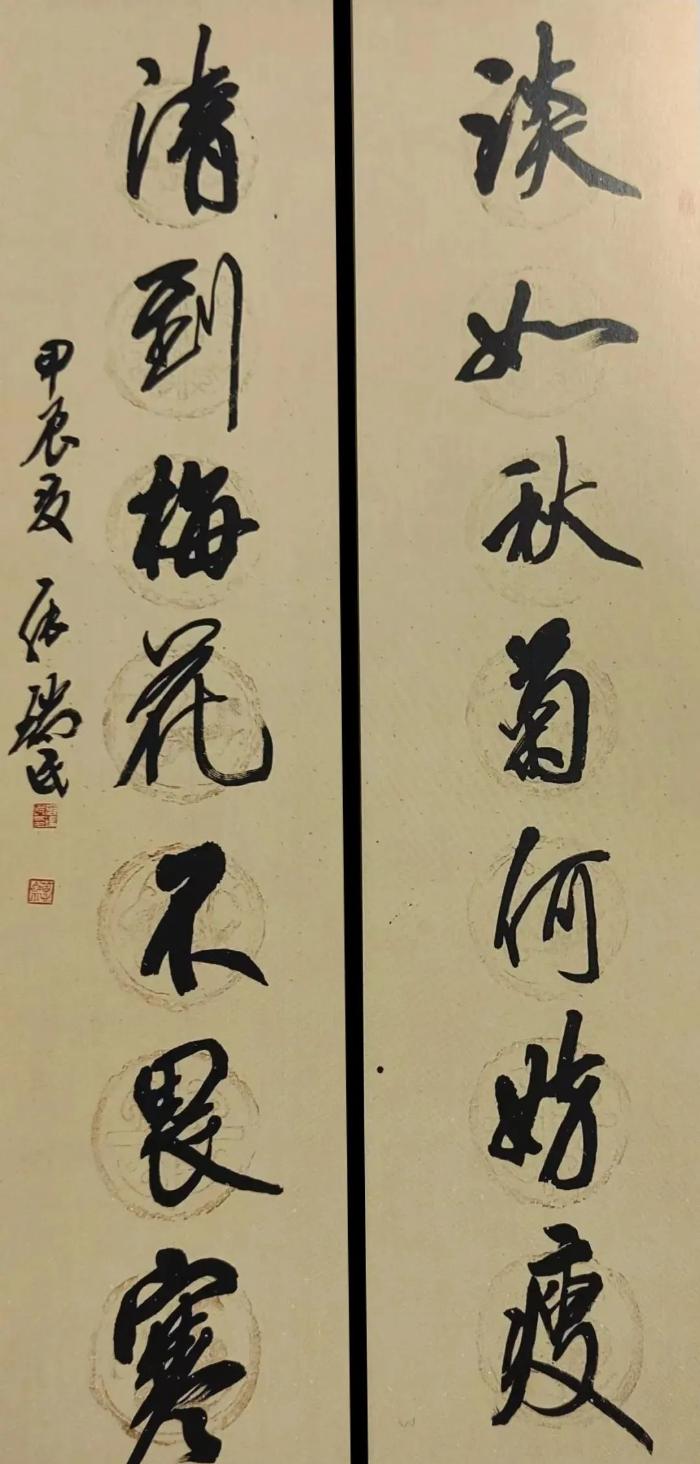 淡如秋菊何妨瘦
清到梅花不畏寒
甲辰夏 张瑞民